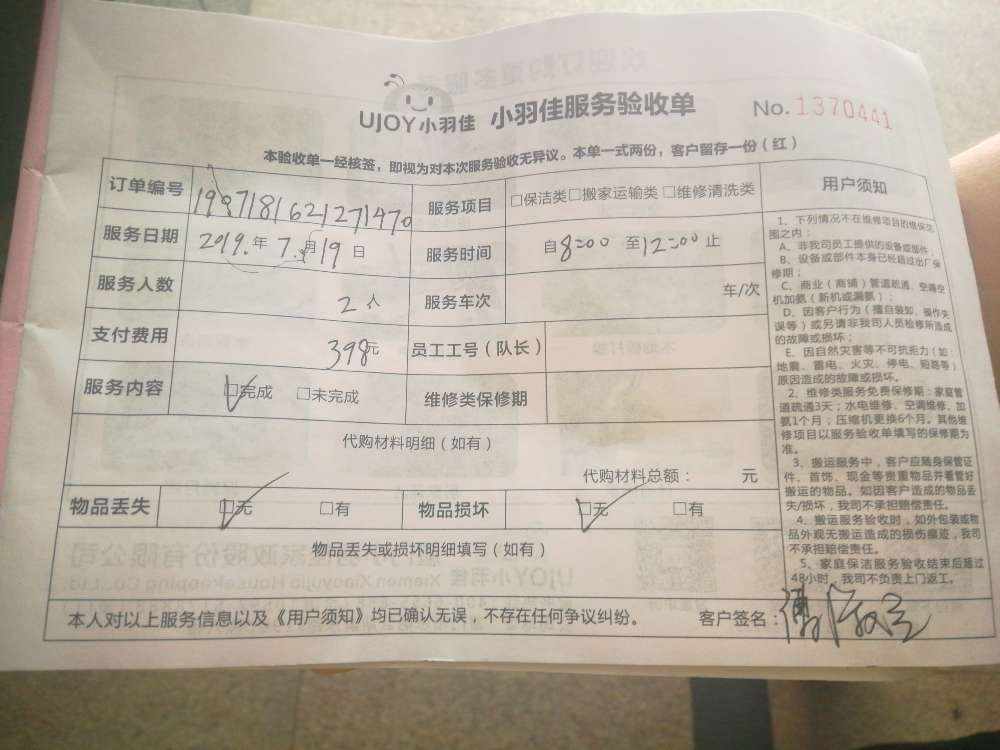 UJOY小羽佳 小羽佳服务验收单 No.1370441
本验收单一经核签，即视为对本次服务验收无异议。本单一式两份，客户留存一份（红）
订单编号 1987181621271470 服务项目 □保洁类□搬家运输类□维修清洗类
服务日期 2019.年 7.月19 日 服务时间 自8:00 至12:00 止
服务人数 2 人 服务车次 车/次
支付费用 398元 员工工号（队长）
服务内容 □完成 □未完成 维修类保修期
代购材料明细（如有）
代购材料总额： 元
物品丢失 □无 □有 物品损坏 □无 □有
物品丢失或损坏明细填写（如有）
本人对以上服务信息以及《用户须知》均已确认无误，不存在任何争议纠纷。 客户签名：
用户须知
1、下列情况不在维修项目的维保范
围之内：
A、非我司员工提供的设备或部件
B、设备或部件本身已经超过出厂保
修期；
C、商业（商铺）管道疏通、空调空
机加氨（新机或漏氨）；
D、因客户行为（擅自装卸、操作失
误等）或另请非我司人员检修所造成
的故障或损坏；
E、因自然灾害等不可抗拒力（如：
地震、雷电、火灾、停电、短路等）
原因造成的故障或损坏。
2、维修类服务免费保修期：家庭管
道疏通3天；水电维修、空调维修、加
氨1个月；压缩机更换6个月。其他维
修项目以服务验收单填写的保修期为
准。
3、搬运服务中，客户应随身保管证
件、首饰、现金等贵重物品并看管好
搬运的物品。如因客户造成的物品丢
失/损坏，我司不承担赔偿责任。
4、搬运服务验收时，如外包装或物
品外观无搬运造成的损伤痕迹，我司
不承担赔偿责任。
5、家庭保洁服务验收结束后超过
48小时，我司不负责上门返工。